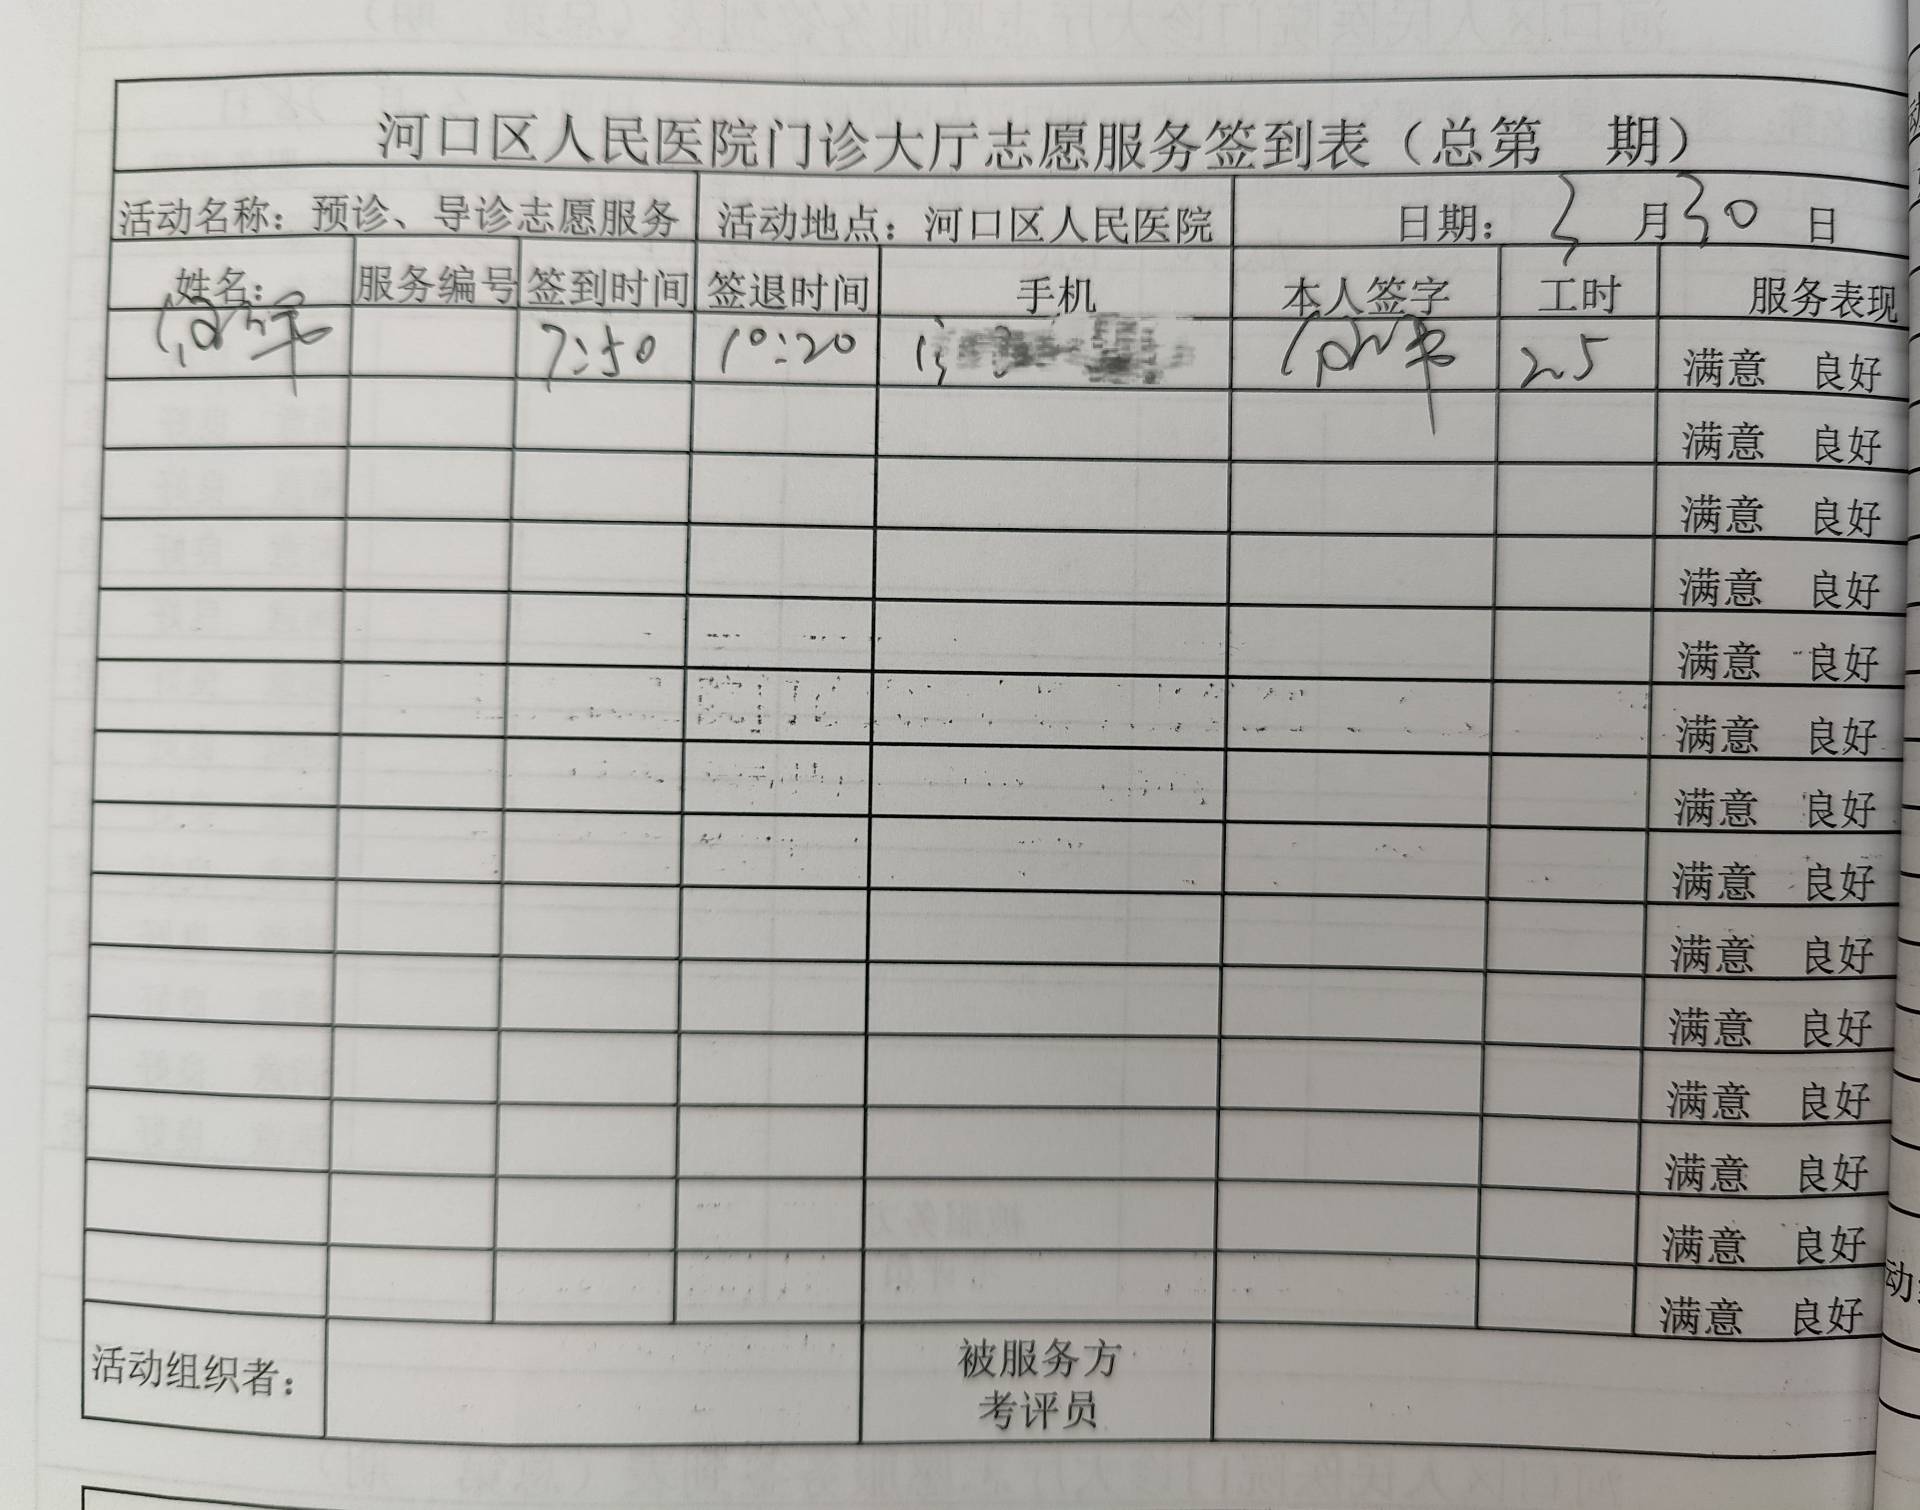 河口区人民医院门诊大厅志愿服务签到表（总第　期）
活动名称：预诊、导诊志愿服务　活动地点：河口区人民医院　日期：3 月 30 日
姓名：　服务编号　签到时间　签退时间　手机　本人签字　工时　服务表现
7:50　10:20　2.5　满意　良好
满意　良好
满意　良好
满意　良好
满意　良好
满意　良好
满意　良好
满意　良好
满意　良好
满意　良好
满意　良好
满意　良好
满意　良好
满意　良好
活动组织者：　被服务方
考评员